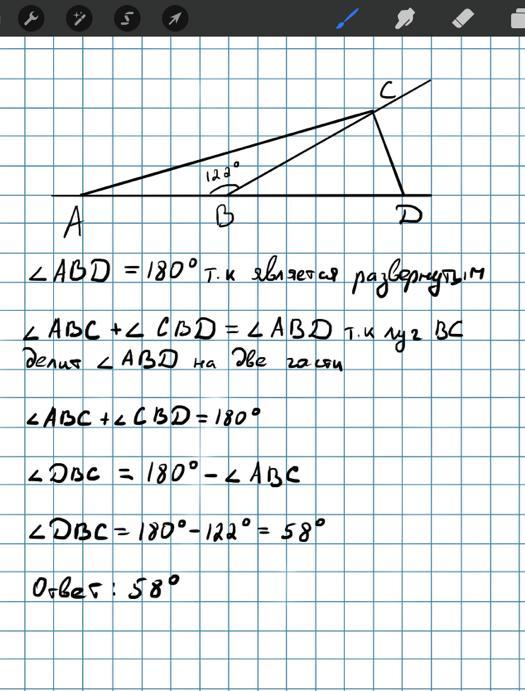 C
122°
A
B
D
∠ABD = 180° т.к является развернутым
∠ABC + ∠CBD = ∠ABD т.к луч BC
делит ∠ABD на две части
∠ABC + ∠CBD = 180°
∠DBC = 180° - ∠ABC
∠DBC = 180° - 122° = 58°
Ответ: 58°